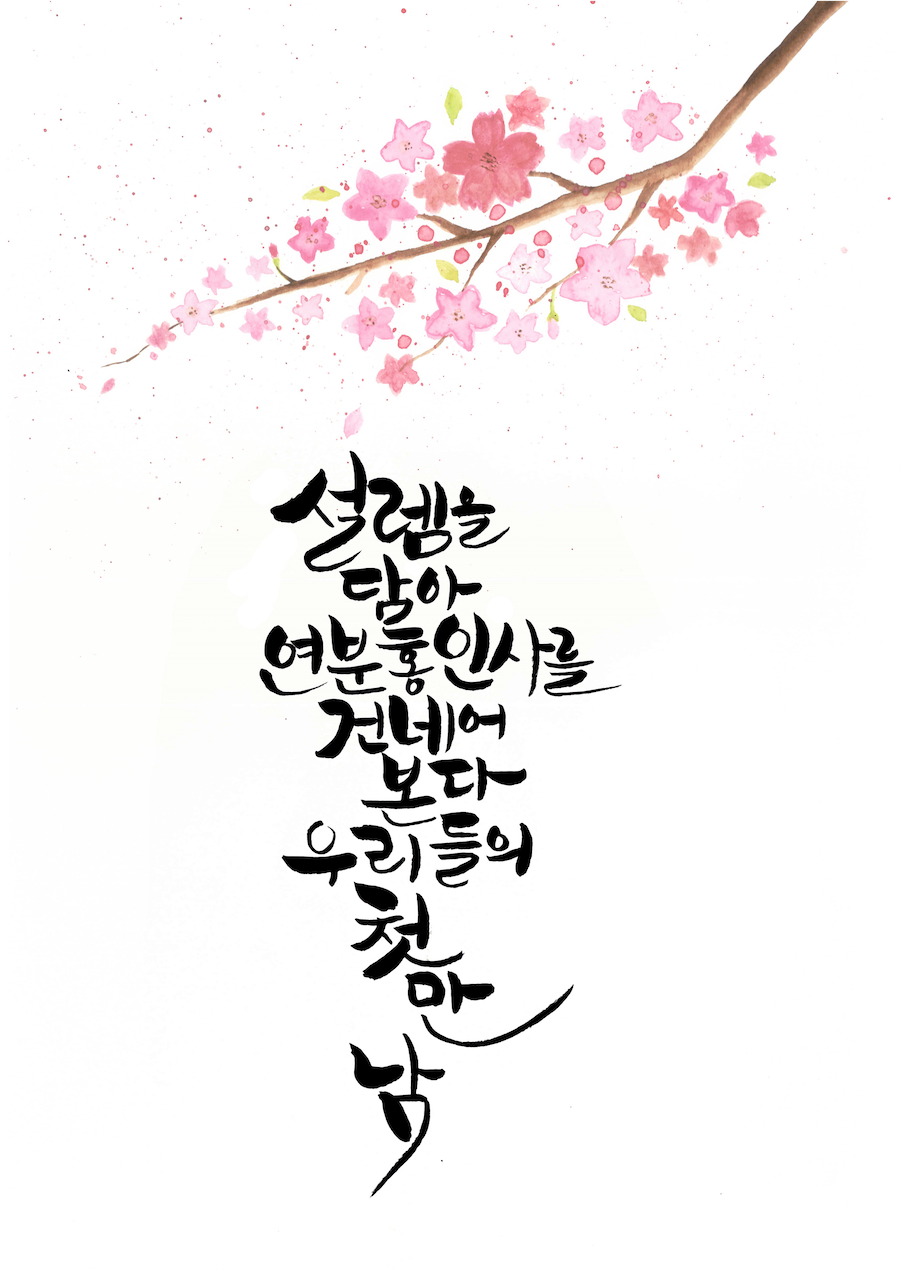 설렘을
담아
연분홍 인사를
건네어
본다
우리들의
첫
만
남